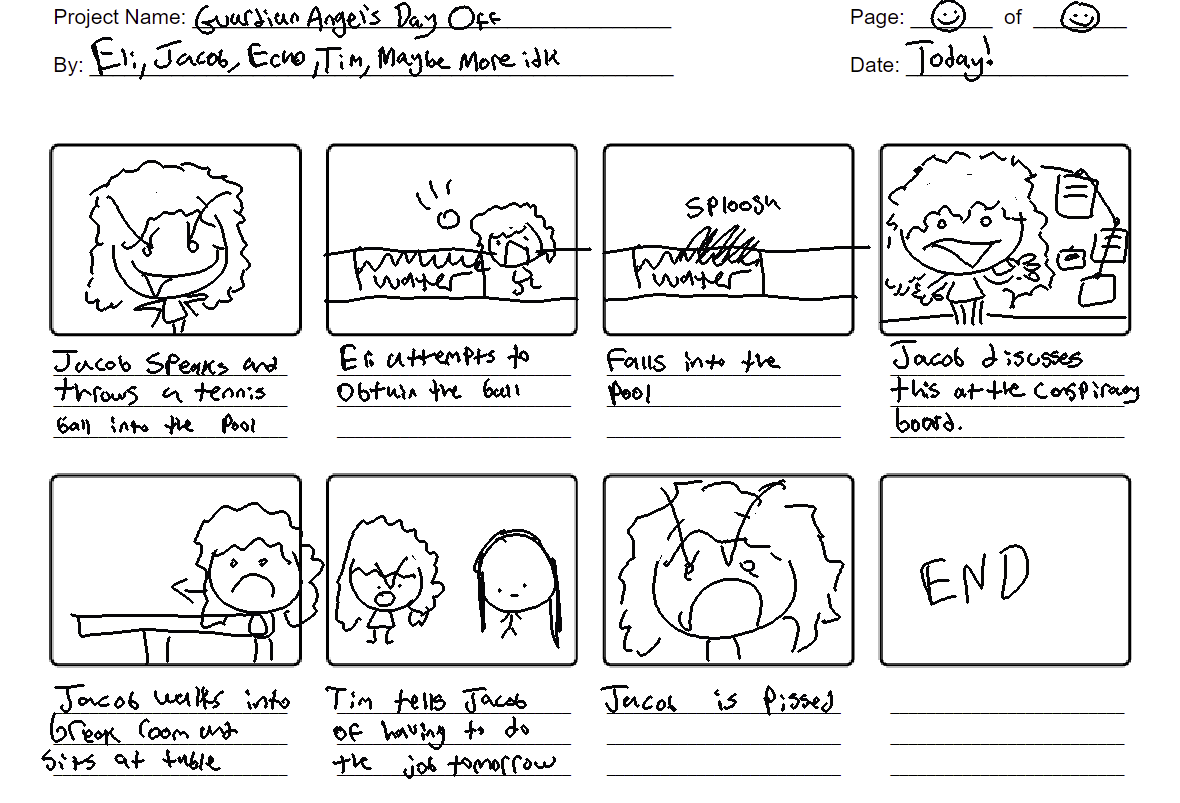 Project Name: Guardian Angel's Day Off
Page: of
By: Eli, Jacob, Echo, Tim, Maybe More idk
Date: Today!
water
Sploosh
water
Jacob Speaks and
throws a tennis
ball into the Pool
Eli attempts to
Obtain the ball
Falls into the
Pool
Jacob discusses
this at the conspiracy
board.
END
Jacob walks into
break room and
Sits at table
Tim tells Jacob
of having to do
the job tomorrow
Jacob is Pissed